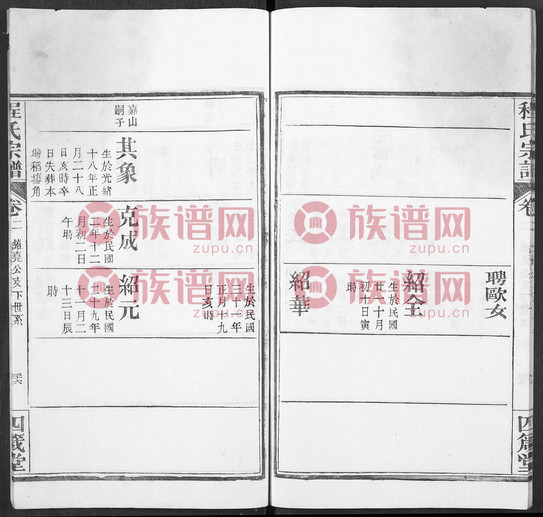 程氏宗譜
卷
四箴堂
聘歐女
紹全
生於民國
廿一十月
初十日寅
時
紹華
生於民國
三十一年
正月十九
日亥時
嘉山
嗣子
其象
生於光緒
十八年正
月二十八
日亥時卒
日失葬本
角
克成
生於民國
二年十二
月初二日
午時
紹元
生於民國
二十九年
十月二
十三日辰
時
程氏宗譜
卷二
公支下世系
四箴堂
族谱网
zupu.cn
族谱网
zupu.cn
族谱网
zupu.cn
族谱网
zupu.cn
族谱网
zupu.cn
族谱网
zupu.cn